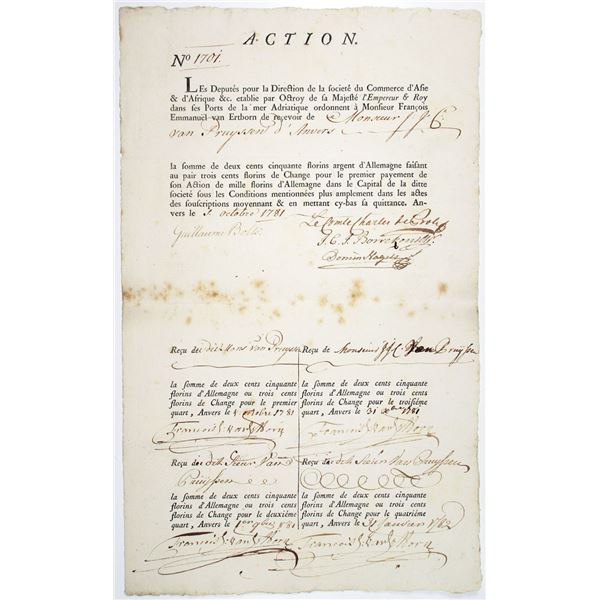 ACTION.
No 1701.
LEs Deputés pour la Direction de la societé du Commerce d'Asie
& d'Afrique &c. etablie par Octroy de sa Majesté l'Empereur & Roy
dans ses Ports de la mer Adriatique ordonnent à Monsieur François
Emmanuel van Ertborn de recevoir de Monsieur J. J. C.
van Pruyssen d'Anvers
la somme de deux cents cinquante florins argent d'Allemagne faisant
au pair trois cents florins de Change pour le premier payement de
son Action de mille florins d'Allemagne dans le Capital de la ditte
societé sous les Conditions mentionnées plus amplement dans les actes
des souscriptions moyennant & en mettant cy-bas sa quittance. An-
vers le octobre 1781
Le Comte Charles de Proli
Guillaume Bolts.
J. C. J. Borrekens
Domin Nagels
Reçu de dit Mons van Pruyssen
la somme de deux cents cinquante
florins d'Allemagne ou trois cents
florins de Change pour le premier
quart, Anvers le octobre 1781
François van Ertborn
Reçu de Monsieur J J C Van Pruyssen
la somme de deux cents cinquante
florins d'Allemagne ou trois cents
florins de Change pour le troisième
quart, Anvers le 31 1781
François van Ertborn
Reçu de dit Sieur Van
Pruyssen
la somme de deux cents cinquante
florins d'Allemagne ou trois cents
florins de Change pour le deuxième
quart, Anvers le 1781
François van Ertborn
Reçu de dit Sieur Van Pruyssen
la somme de deux cents cinquante
florins d'Allemagne ou trois cents
florins de Change pour le quatrième
quart, Anvers le 31 Janvier 1782
François van Ertborn